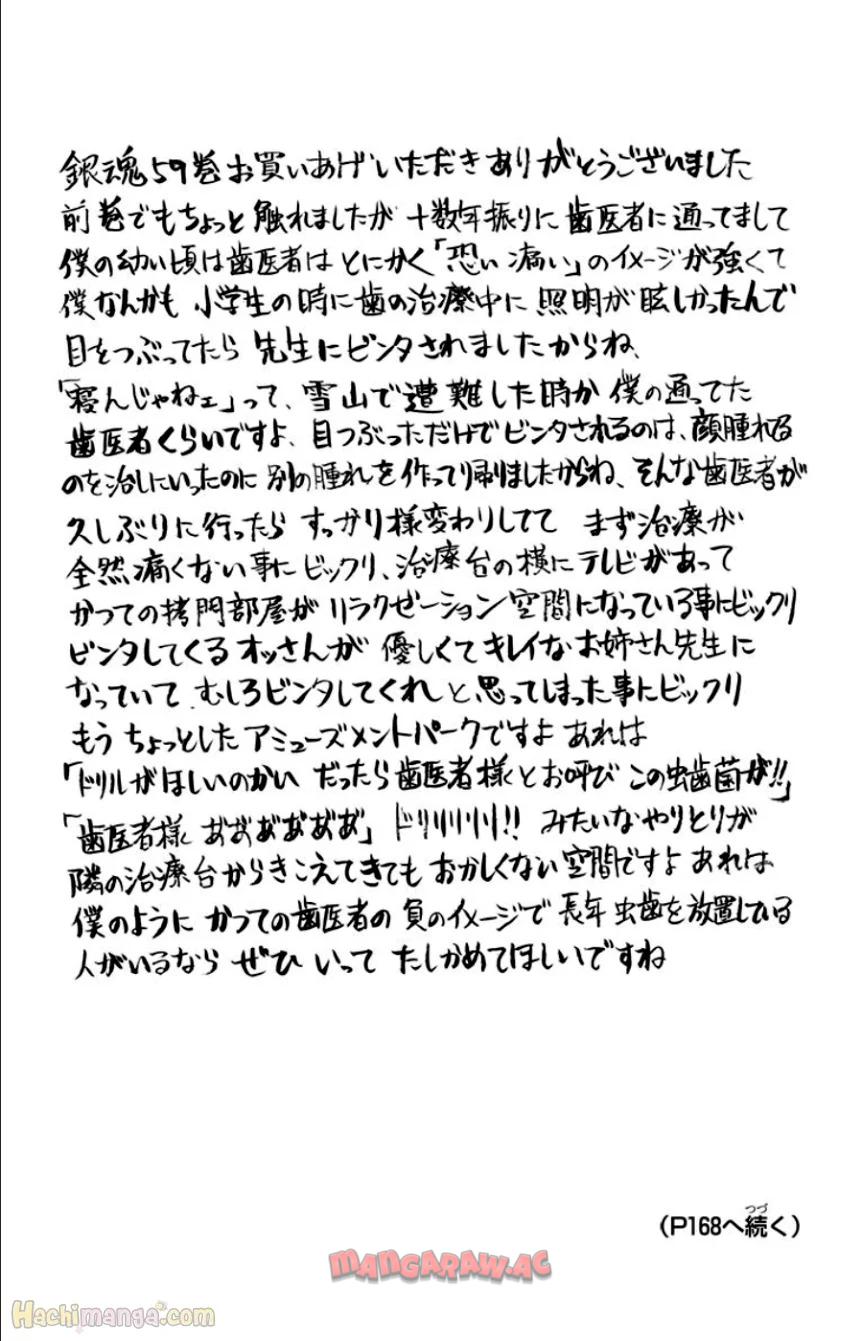 銀魂59巻お買いあげいただきありがとうございました
前巻でもちょっと触れましたが 十数年振りに歯医者に通ってまして
僕の幼い頃は歯医者はとにかく「恐い痛い」のイメージが強くて
僕なんかも 小学生の時に歯の治療中に 照明が眩しかったんで
目をつぶってたら 先生にビンタされましたからね、
「寝んじゃねェ」って、雪山で遭難した時か 僕の通ってた
歯医者くらいですよ、目つぶっただけでビンタされるのは、顔腫れる
のを治しにいったのに 別の腫れを作って帰りましたからね、そんな歯医者が
久しぶりに行ったら すっかり様変わりしてて まず治療が
全然痛くない事にビックリ、治療台の横にテレビがあって
かつての拷門部屋が リラクゼーション空間になっている事にビックリ
ビンタしてくるオッさんが 優しくてキレイなお姉さん先生に
なっていて むしろビンタしてくれ と思ってしまった事にビックリ
もう ちょっとした アミューズメントパークですよ あれは
「ドリルがほしいのかい だったら歯医者様とお呼び この虫歯菌が!!」
「歯医者様 あ゙あ゙あ゙あ゙あ゙あ゙」 ドリリリリリ!! みたいなやりとりが
隣の治療台からきこえてきても おかしくない空間ですよ あれは
僕のように かつての歯医者の 負のイメージで 長年 虫歯を放置している
人がいるなら ぜひ いって たしかめてほしいですね
(P168へ続く)
つづ
MANGARAW.AC
Hachimanga.com